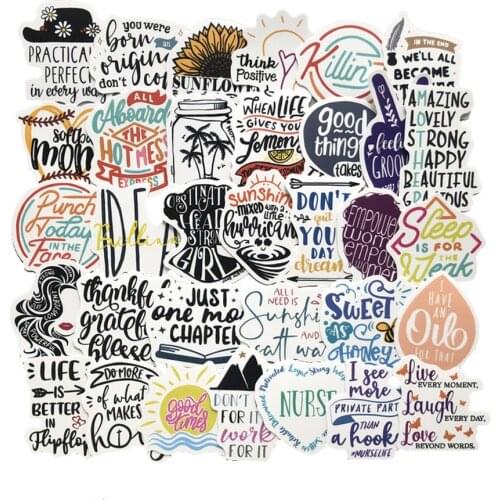 PRACTICAL
PERFECT
in every wa
you were
born
an
original
don't co
SUNFLOWER
think
Positive
Killin'
IN THE END
WE'LL ALL
BECOME
softball
mom
ALL
Aboard
THE
HOT MESS
EXPRESS
WHEN LIFE
GIVES YOU
Lemon
good
thing
takes
feelin
GROOV
AMAZING
LOVELY
STRONG
HAPPY
BEAUTIFUL
GORGEOUS
MOTHER
Punch
Today
IN THE
Face
IDEA
Bullion
OBSTINATE
HEAD
STRONG
GIRL
Sunshine
mixed with a little
hurricane
DON'T
quit
YOU
DAY
dream
EMPOWE
WOM
EMPO
WOM
Sleep
IS FOR
THE
Weak
thankful
grateful
blessed
JUST
one mo
CHAPTER
ALL I
NEED IS
Sunshi
AND
salt wa
SWEET
AS
Honey
I
HAVE
AN
Oil
FOR THAT
LIFE
IS
BETTER
IN
Flipflop
DO MORE
of what
MAKES
good
times
DON'T
FOR IT
work
FOR IT
NURSE
I
see
more
PRIVATE PART
THAN
a hook
#NURSELIFE
Live
EVERY MOMENT,
Laugh
EVERY DAY,
Love
BEYOND WORDS.